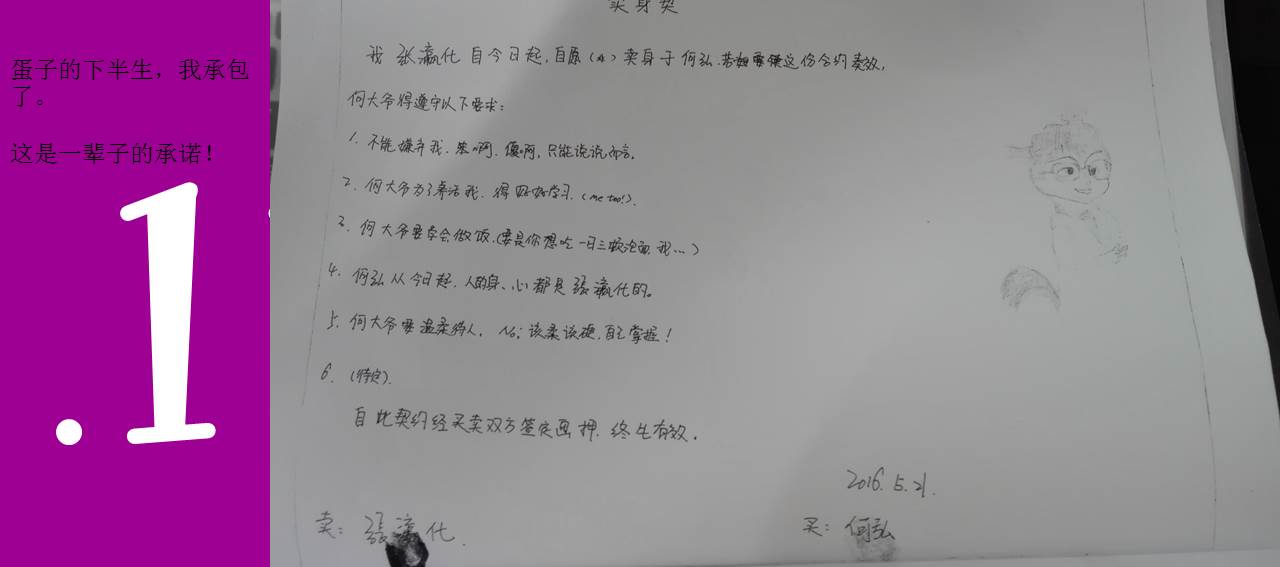 蛋子的下半生，我承包
了。
这是一辈子的承诺！
.1
卖身契
我 张瀛化 自今日起，自愿（ ）卖身于何弘，这份合约卖效，
何大爷得遵守以下要求：
1. 不能嫌弃我，笨啊，傻啊，只能说说而言。
2. 何大爷为了养活我，得好好学习，（me too!）.
3. 何大爷要学会做饭，（要是你想吃一日三顿泡面，我...）
4. 何弘从今日起，人的身、心都是张瀛化的。
5. 何大爷要温柔待人， No；该柔该硬，自己掌握！
6. （待定）.
自此契约经买卖双方签定画押，终生有效。
2016.5.21.
卖：张瀛化.
买：何弘